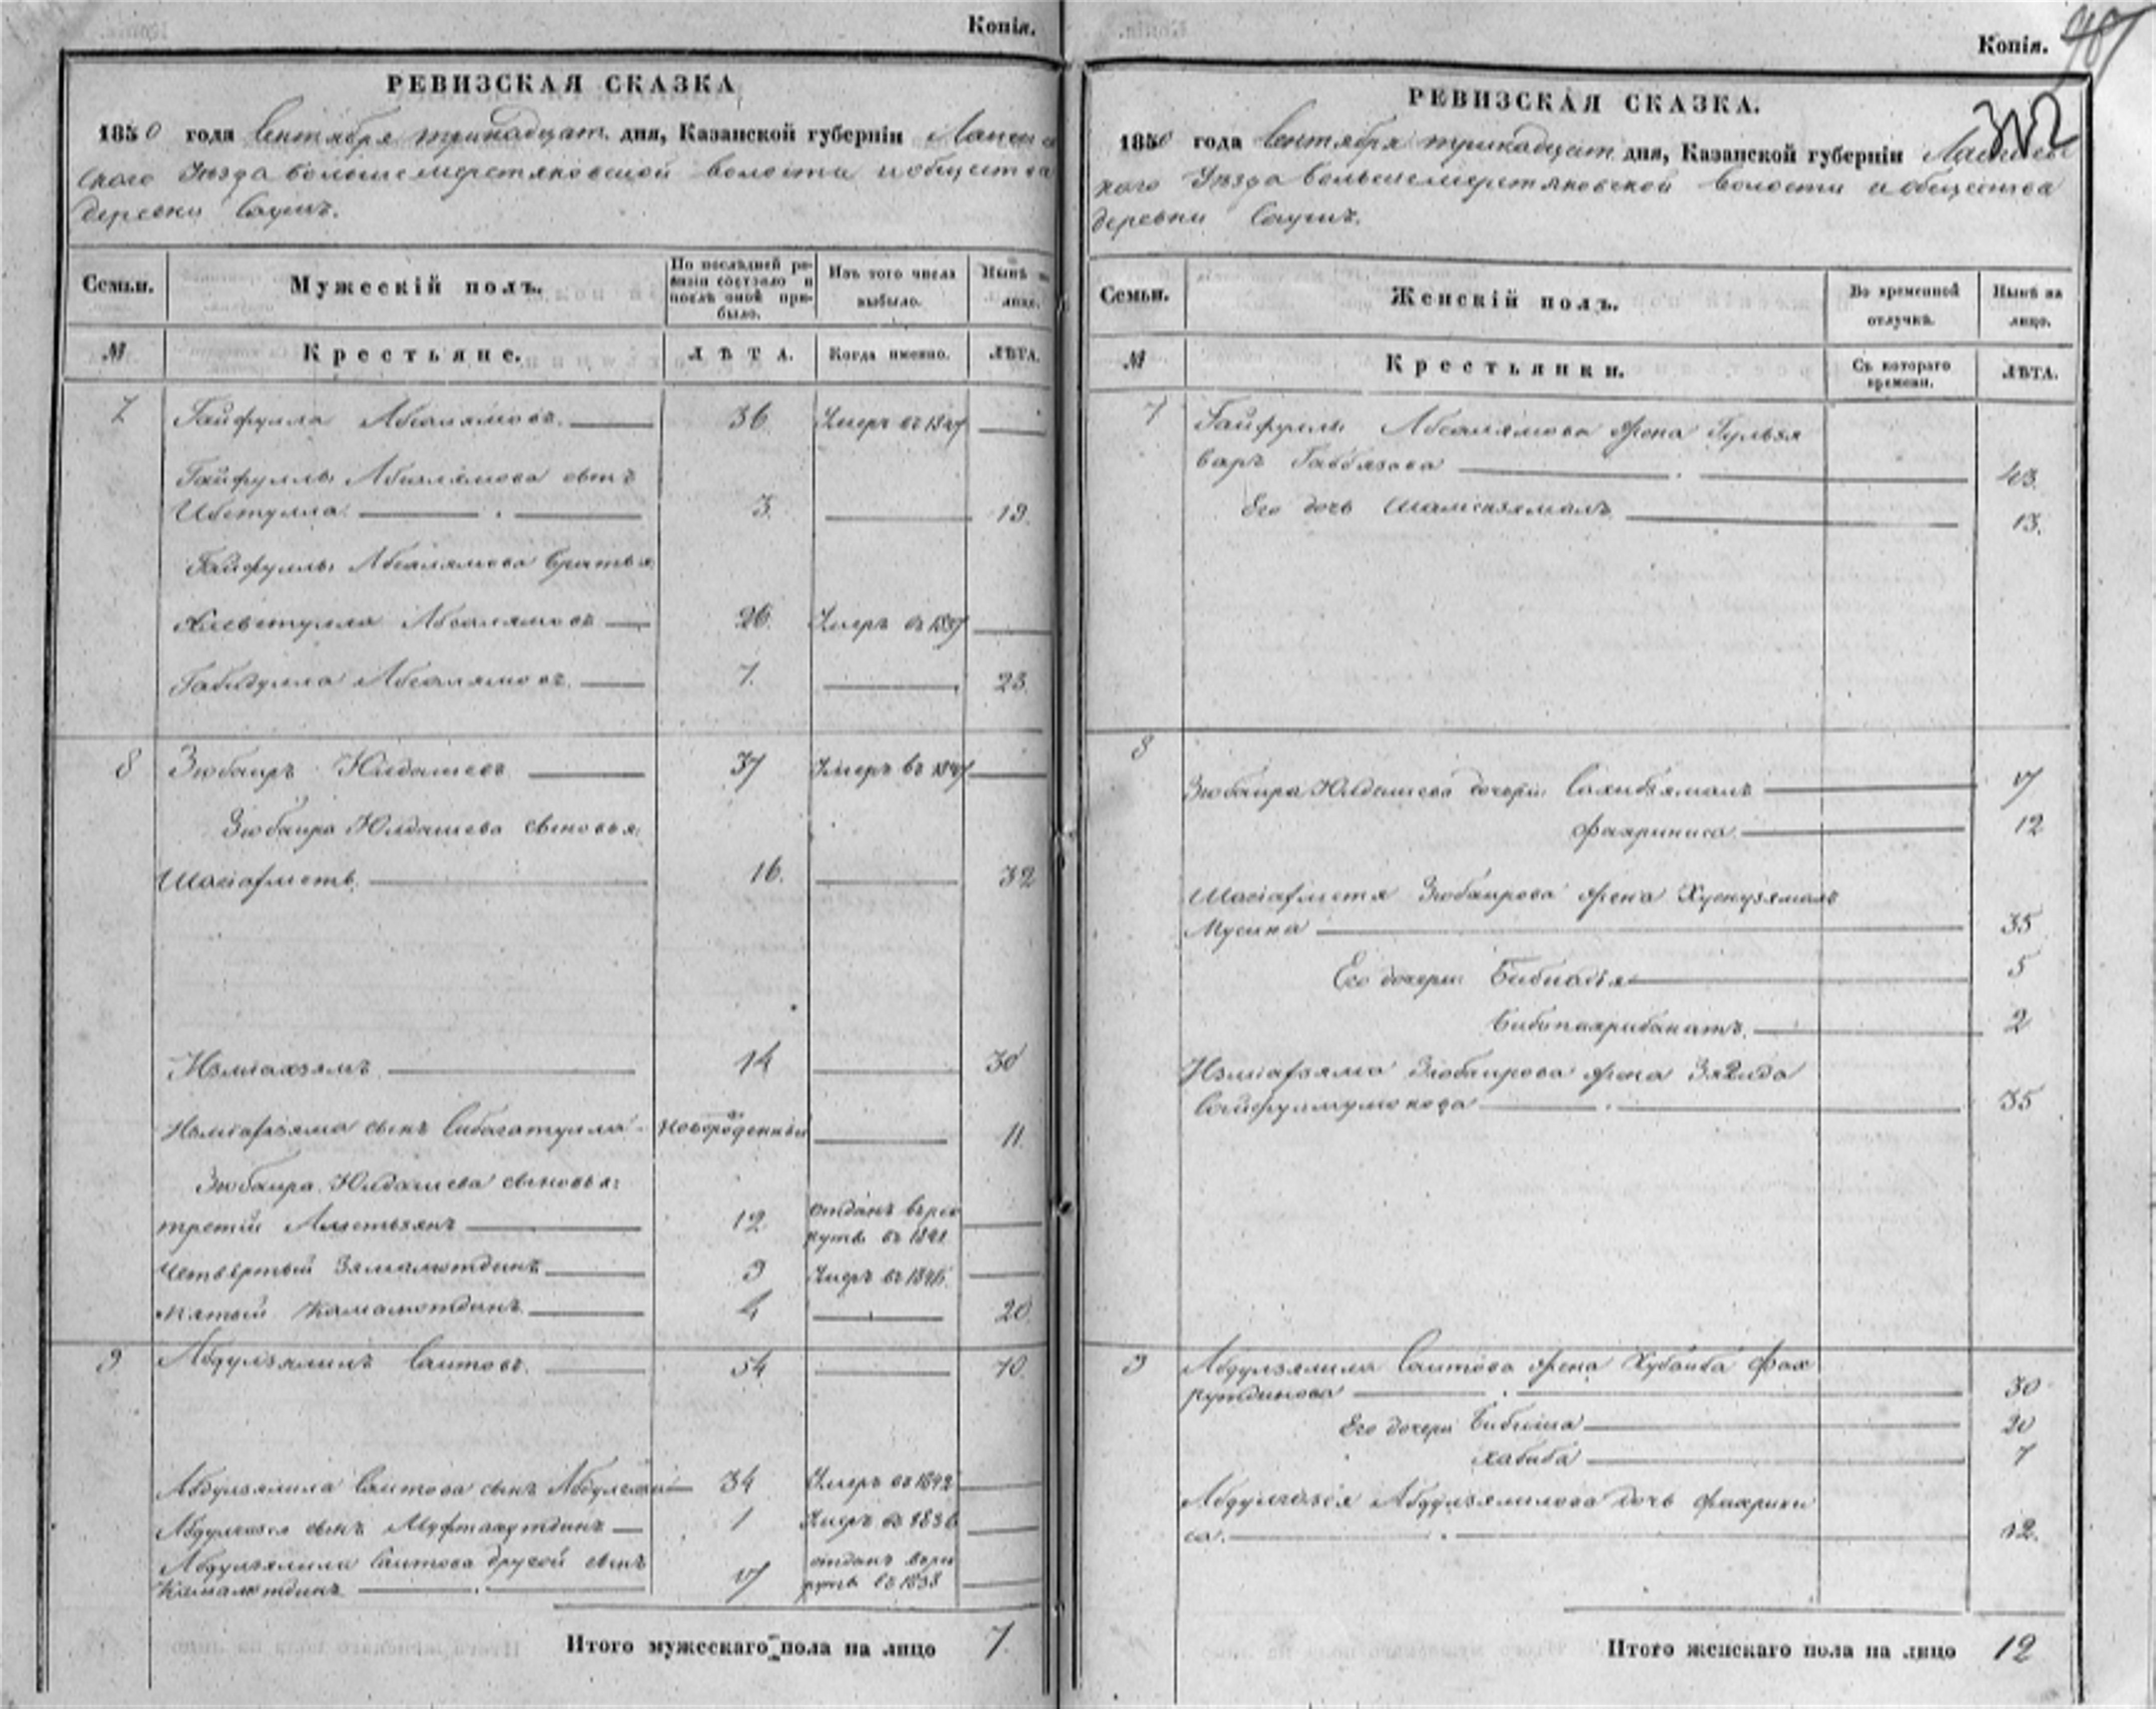 Копія.
РЕВИЗСКАЯ СКАЗКА
1850 года Сентября тринадцат. дня, Казанской губерніи Лаишев
скаго Уѣзда большемеретяковской волости и общества
деревни Сауш.
Семьи. Мужескій полъ. По послѣдней ре- Изъ того числа Нынѣ на
визіи состояло и
послѣ оной при- выбыло. лицо.
было.
№ Крестьяне. ЛѢТА. Когда именно. ЛѢТА.
7 Гайфулла Абсалямовъ 36 Умеръ въ 1847
Гайфуллы Абсалямова сынъ
3 19.
Гайфуллы Абсалямова братья
Абсалямовъ 26 Умеръ въ
Габидулла Абсалямовъ 7. 23.
8 Зюбаиръ Юлдашевъ 37 Умеръ въ 1847
Зюбаира Юлдашева сыновья:
Шагіахметъ 16. 32
14 30
сынъ Сибагатулла новорожденный 11.
Зюбаира Юлдашева сыновья:
третій Ахметзянъ 12 отданъ въ рек
рутъ въ 1841
Четвертый Зямалютдинъ 9 Умеръ въ 1846
пятый Камалютдинъ 4 20
9 Абдулзялилъ Саитовъ. 54 70.
Абдулзялила Саитова сынъ 34 Умеръ въ 1842
сынъ Мифтахутдинъ 1 Умеръ въ 1836
Абдулзялила Саитова другой сынъ 17 отданъ въ рек
Камалютдинъ рутъ въ 1838
Итого мужескаго пола на лицо 7.
Копія.
312
РЕВИЗСКАЯ СКАЗКА.
1850 года Сентября тринадцат. дня, Казанской губерніи Лаишев
каго Уѣзда большемеретяковской волости и общества
деревни Сауш.
Семьи. Женскій полъ. Во временной Нынѣ на
отлучкѣ. лицо.
№ Крестьянки. Съ котораго ЛѢТА.
времени.
7 Гайфуллы Абсалямова жена Гулзя
варъ Габбязова 43.
Его дочь Шамсизямалъ 13.
8
Зюбаира Юлдашева дочери Сахибзямалъ 17
Фахриниса 12
Шагіахметя Зюбаирова жена Хуснузямалъ
Мусина 35
Его дочери 5
2
Зюбаирова жена
35
9 Абдулзялила Саитова жена Хубайба Фах
рутдинова 30
Его дочери Бибиша 20
Хабиба 7
Абдулзялилова дочь Фахрини
са. 12.
Итого женскаго пола на лицо 12